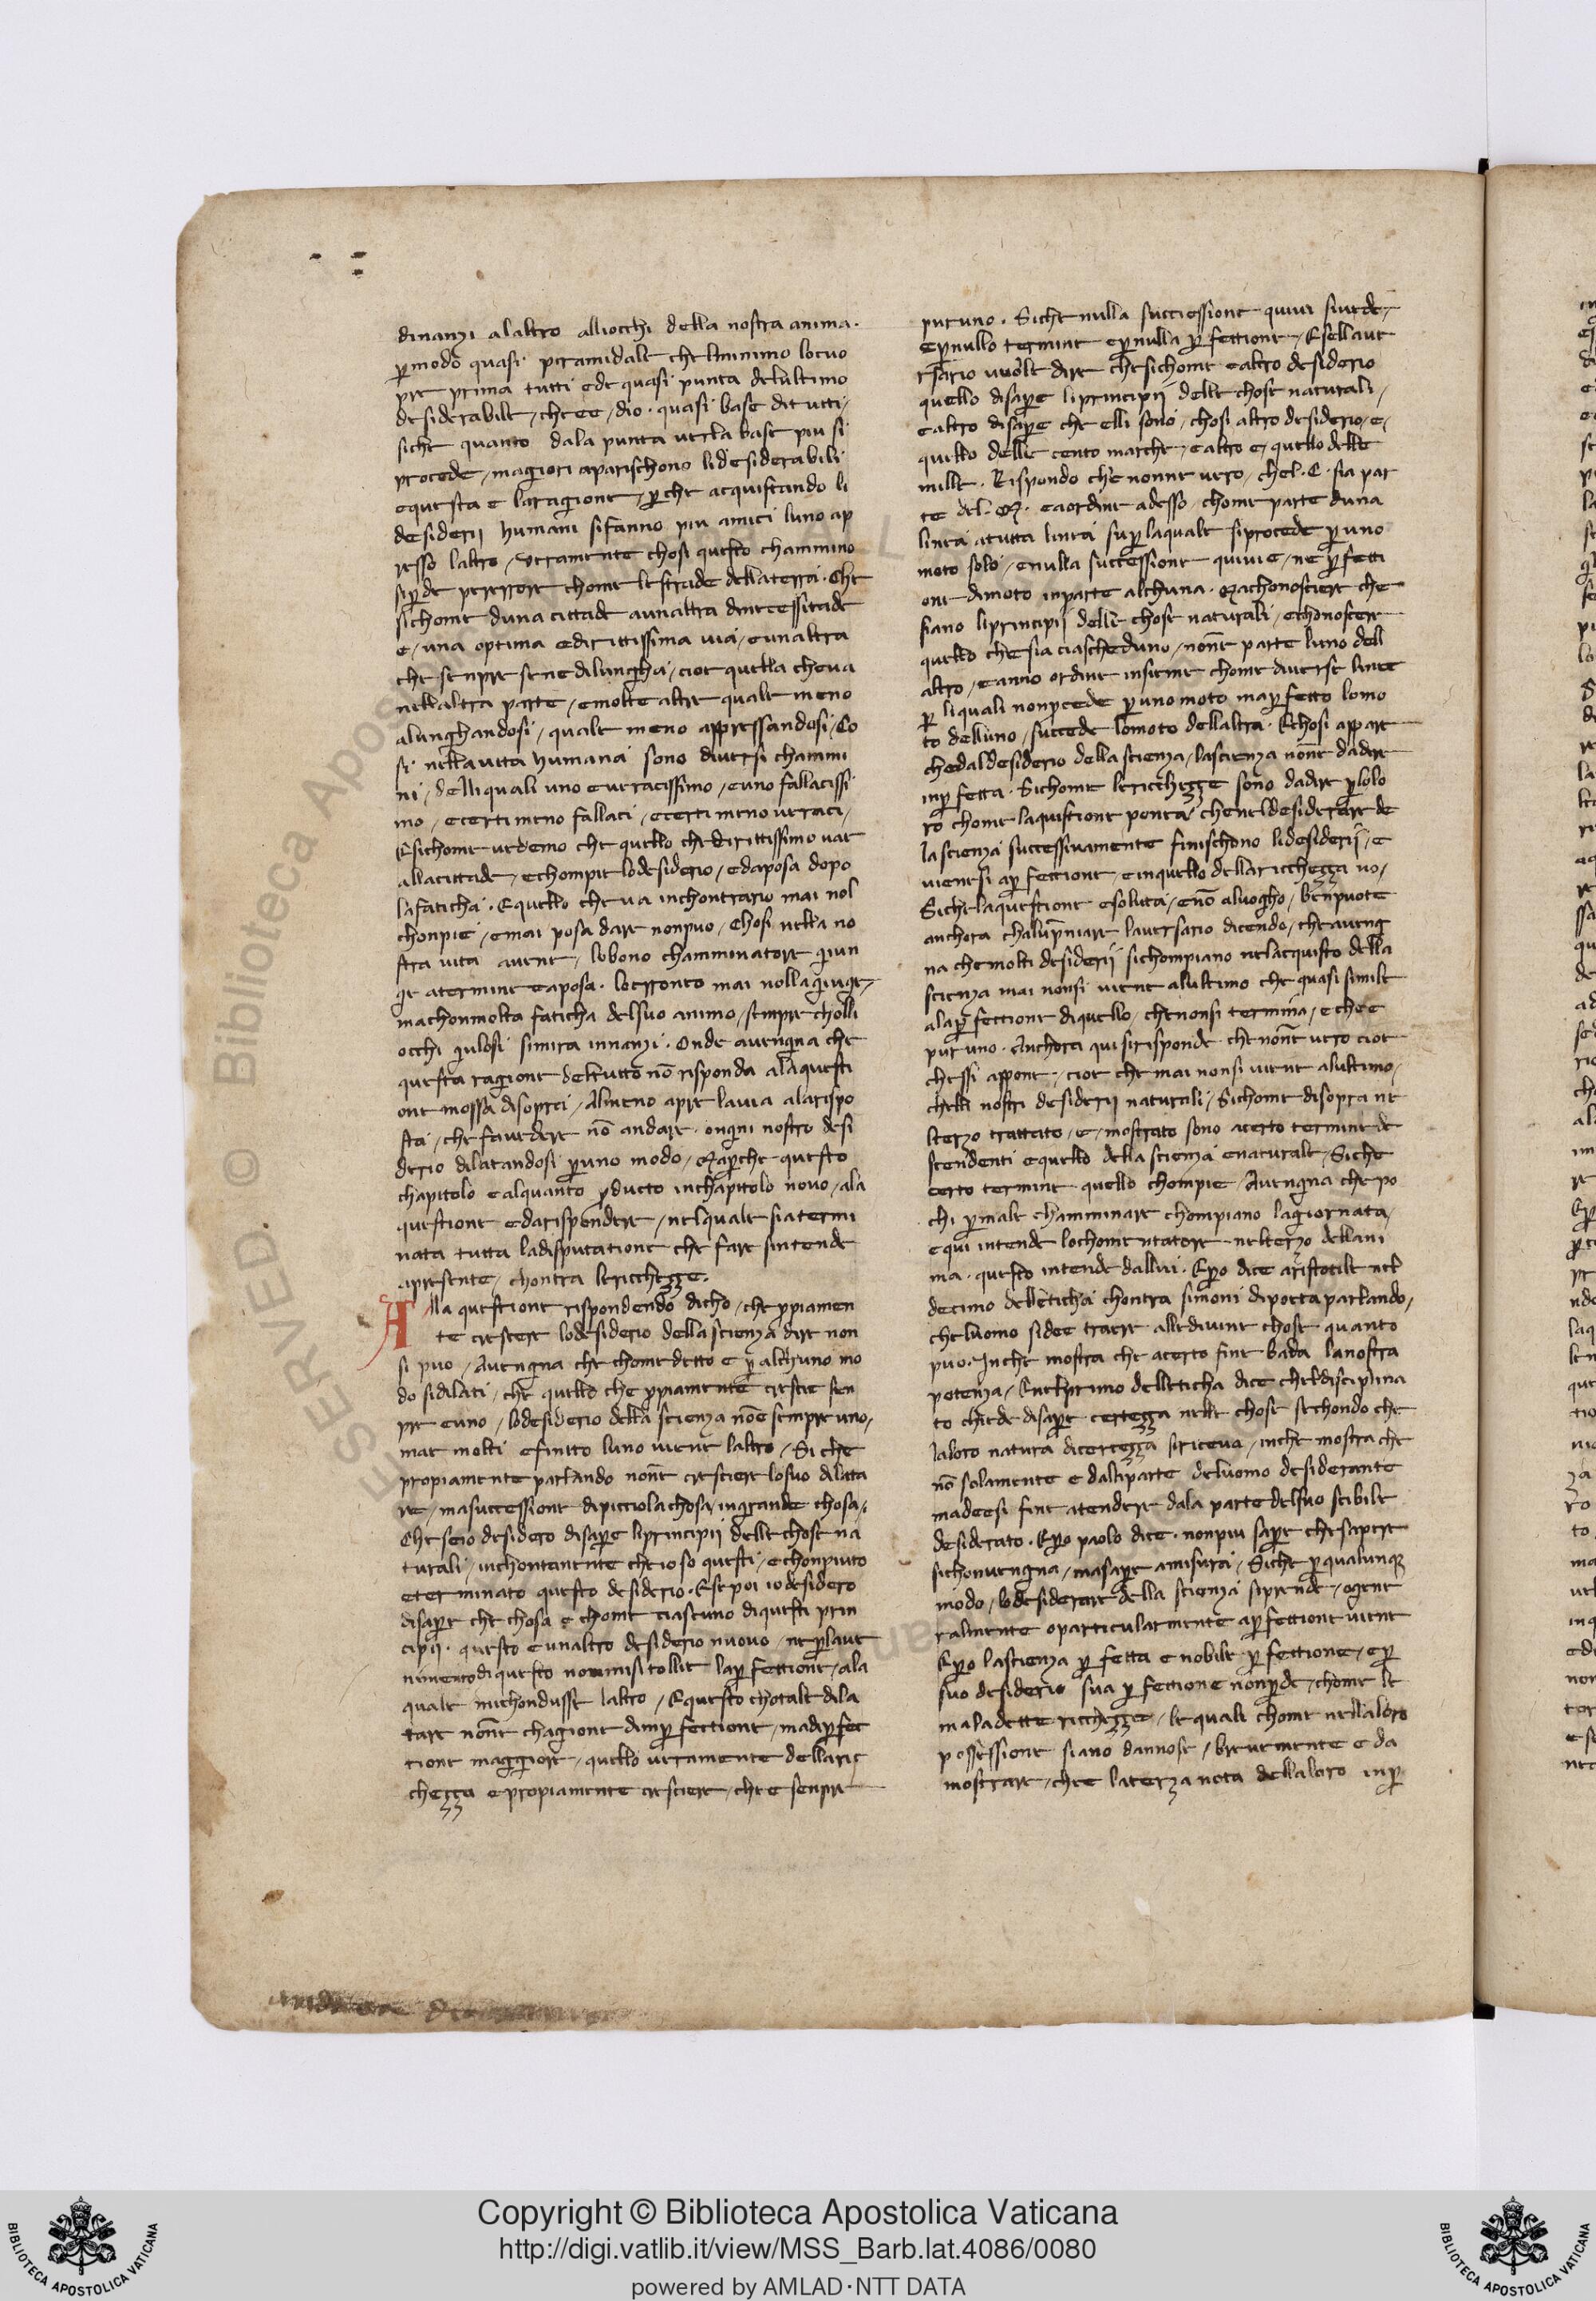 dinanzi alaltro alliocchi della nostra anima.
p̱ modo quasi piramidale chelminimo locuo
pre prima tutti ede quasi punta delultimo
desiderabile / chee / dio . quasi base ditutti /
siche quanto dala punta uerla base piu si
procede / magiori aparischono lidesiderabili
equesta e laragione / p̱che acquistando li
desiderij humani sifanno piu amici luno ap
resso laltro / veramente chosi questo chammino
sip̱de pererrore chome lestrade dellaterra . Che
sichome duna cittade aunaltra dinecessitade
e / una optima edirittissima uia / eunaltra
che senpre senedilungha / cioe quella cheua
nellaltra parte / emolte altre quale meno
alunghandosi / quale meno appressandosi / Co
si nellauita humana sono diuersi chammi
ni / delliquali uno eueracissimo / euno fallacissi
mo / ecerti meno fallaci / ecerti meno ueraci /
Esichome uedemo che quello chedirittissimo uae
allacittade / echompie lodesiderio / edaposa dopo
lafaticha . Equello cheua inchontrario mai nol
chonpie / emai posa dare nonpuo / Chosi nella no
stra uita auene / lobono chamminatore giun
ge atermine eaposa . loerronео mai nollagiugne /
machonmolta faticha delsuo animo / sempre cholli
occhi gulosi simira innanzi . Onde auengna che
questa ragione deltutto nō risponda alaquesti
one mossa disopra / Almeno apre lauia alarispo
sta / che fauedere nō andare ongni nostro desi
derio dilatandosi p̱uno modo / Map̱che questo
chapitolo ealquanto p̱ducto inchapitolo nouo / ala
questione edarispondere / nelquale siatermi
nata tutta ladisputatione che fare sintende
apresente / chontra lericchezze .
Alla questione rispondendo dicho / che p̱piamen
te crescere lodesiderio della scienza dire non
si puo / Auengna che chomedetto e p̱ alchuno mo
do sidilati / che quello che p̱piamente cresce sen
pre euno / lodesiderio della scienza nōe sempre uno /
mae molti efinito luno uiene laltro / Siche
propiamente parlando nonē crescere losuo dilata
re / masuccessione dipicciola chosa / ingrande chosa /
Che seio desidero disap̱e liprincipij delle chose na
turali / inchontanente cheio so questi / echonpiuto
eterminato questo desiderio . Esepoi iodesidero
disap̱e che chosa e chome ciascuno diquesti prin
cipij . questo eunaltro desiderio nuouo / nep̱laue
nimento diquesto nonmisitollie lap̱fectione / ala
quale michondusse laltro / Equesto chotale dila
tare nonē chagione dinp̱fectione / madip̱fec
tione maggiore / quello ueramente dellaric
chezza epropiamente crescere / chee senpre
pur uno . Siche nulla successione quiui siuede /
ep̱nullo termine ep̱nulla p̱fectione / Esellaue
rsario uuole dire chesichome ealtro desiderio
quello disap̱e liprincipij delle chose naturali /
ealtro disap̱e che elli sono / chosi altro desiderio / e /
quello delle cento marche / ealtro e / quello delle
mille . Rispondo che nonne uero / chel . C . sia par
te del . M . eaordine adesso / chome parte duna
linea atutta linea sup̱laquale siprocede p̱ uno
moto solo / enulla successione quiui e / ne p̱fecti
one dimoto inparte alchuna . Machonoscere che
siano liprincipij delle chose naturali / echonoscere
quello chesia ciascheduno / nonē parte luno dell
altro / eanno ordine insieme chome diuerse linee
p̱ liquali nonp̱cede p̱uno moto map̱fetto lomo
to delluno / succede lomoto dellaltra . Echosi appare
chedaldesiderio della scienza / lascienza nonē dadire
inp̱fetta . Sichome lericchezze sono dadire p̱lolo
ro chome laquistione ponea / chenel desiderare de
lascienza successiuamente finischono lidesiderij / e
uienesi ap̱fectione einquello dellaricchezza no .
Siche laquestione esoluta / enō aluogho / benpuote
anchora chalup̱niare lauersario dicendo / che aueng
na chemolti desiderij sichompiano nelacquisto della
scienza mai nonsi uiene alultimo che quasi simile
alap̱fectione diquello / chenonsi termina / echee
pur uno . Anchora qui sirisponde chenonē uero cioe
chessi appone / cioe che mai nonsi uiene alultimo /
chelli nostri desiderij naturali / Sichome disopra ne
lterzo trattato / e / mostrato sono acerto termine de
scendenti equello della scienza enaturale / Siche
certo termine quello chompie / Auengna che po
chi p̱male chamminare chompiano lagiornata /
equi intende lochomentatore nelterzo dellani
ma . questo intende dallui . Ep̱o dice aristotile nel
decimo delleticha chontra simoni dipoeta parlando /
cheluomo sidee traere alledivine chose quanto
puo . Inche mostra che acerto fine bada lanostra
potenza / Enelprimo delleticha dice cheldisciplina
to chiede disap̱e certezza nelle chose sechondo che
laloro natura dicertezza siriceua / inche mostra che
nō solamente e dallaparte deluomo desiderante
madeesi fine atendere dala parte delsuo scibile
desiderato . Ep̱o paolo dice . nonpiu sap̱e chesapere
sichonuengna / masap̱e amisura / Siche p̱qualunq̄
modo / lodesiderare della scienza siprende / ogene
ralmente oparticularmente ap̱fectione uiene
Ep̱o lascienza p̱fetta e nobile p̱fectione / ep̱
suo desiderio sua p̱fectione nonp̱de / chome le
maladette ricchezze / lequale chome nellaloro
possessione siano dannose / breuemente e da
mostrare / chee laterza nota dellaloro inp̱
Copyright © Biblioteca Apostolica Vaticana
http://digi.vatlib.it/view/MSS_Barb.lat.4086/0080
powered by AMLAD·NTT DATA
BIBLIOTECA APOSTOLICA VATICANA
BIBLIOTECA APOSTOLICA VATICANA